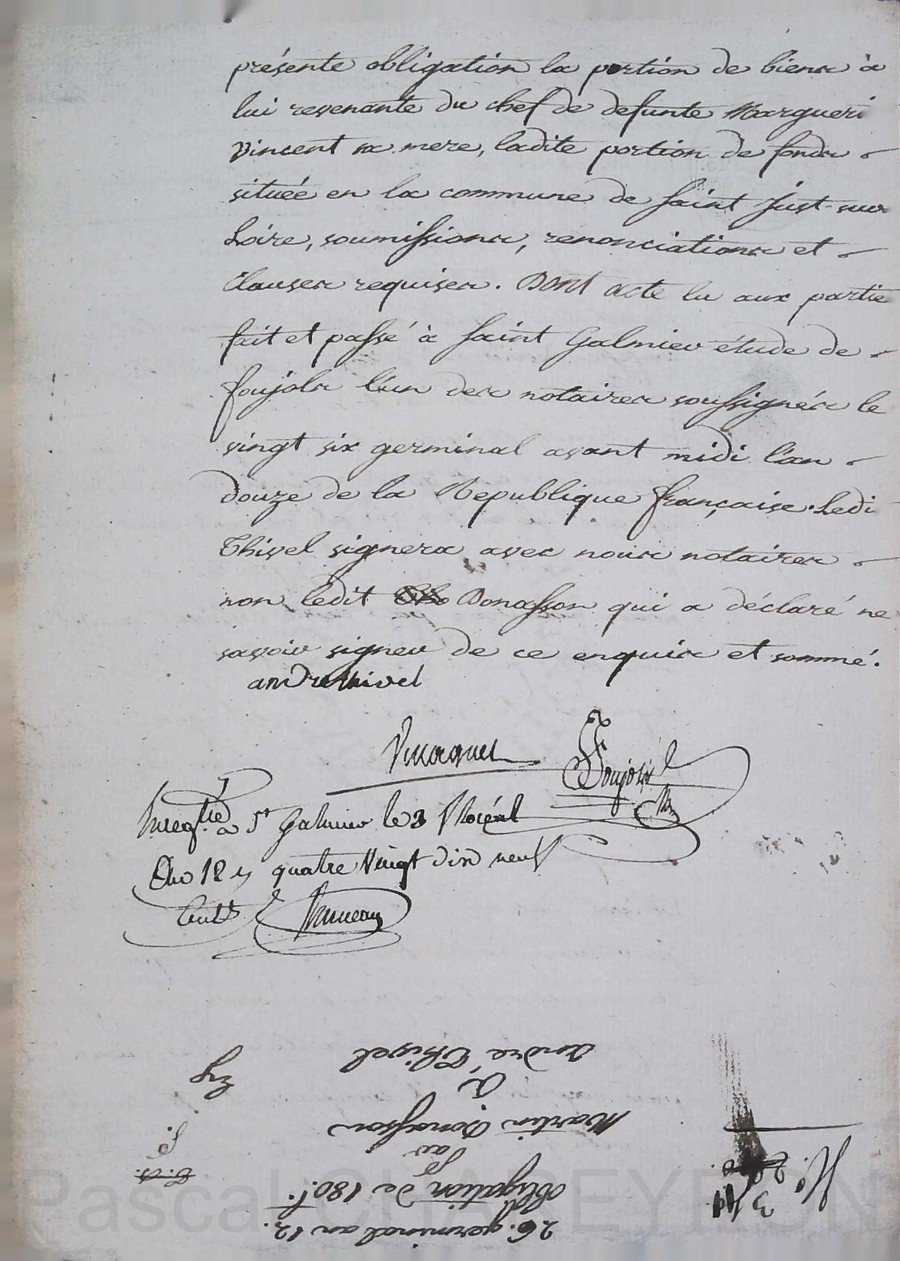 présente obligation la portion de biens à
lui revenante du chef de defunte Margueri
Vincent sa mere, ladite portion de fonds
située en la commune de Saint Just-sur
Loire, soumissions, renonciations et
Clauses requises. Dont acte lu aux partie
fait et passé à Saint Galmier étude de
foujols l'un des notaires soussignés le
vingt six germinal avant midi l'an
douze de la Republique française. Ledi
Thivel signera avec nous notaires
non ledit Bonasson qui a déclaré ne
savoir signer de ce enquis et sommé.
andre thivel
Foujols
Enregtré à St Galmier le 3 floréal
an 12 quatre Vingt dix neuf
Cents
26. germinal an 12.
obligation de 180f.
par
Martin Bonasson
à
andré Thivel
Pascal CHABEYRON